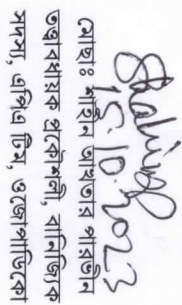 15.10.2023
মোছাঃ শাহিন আখতার পারভীন
তত্ত্বাবধায়ক প্রকৌশলী, বানিজ্যিক
সদস্য, এপিএ টিম, ওজোপাডিকো